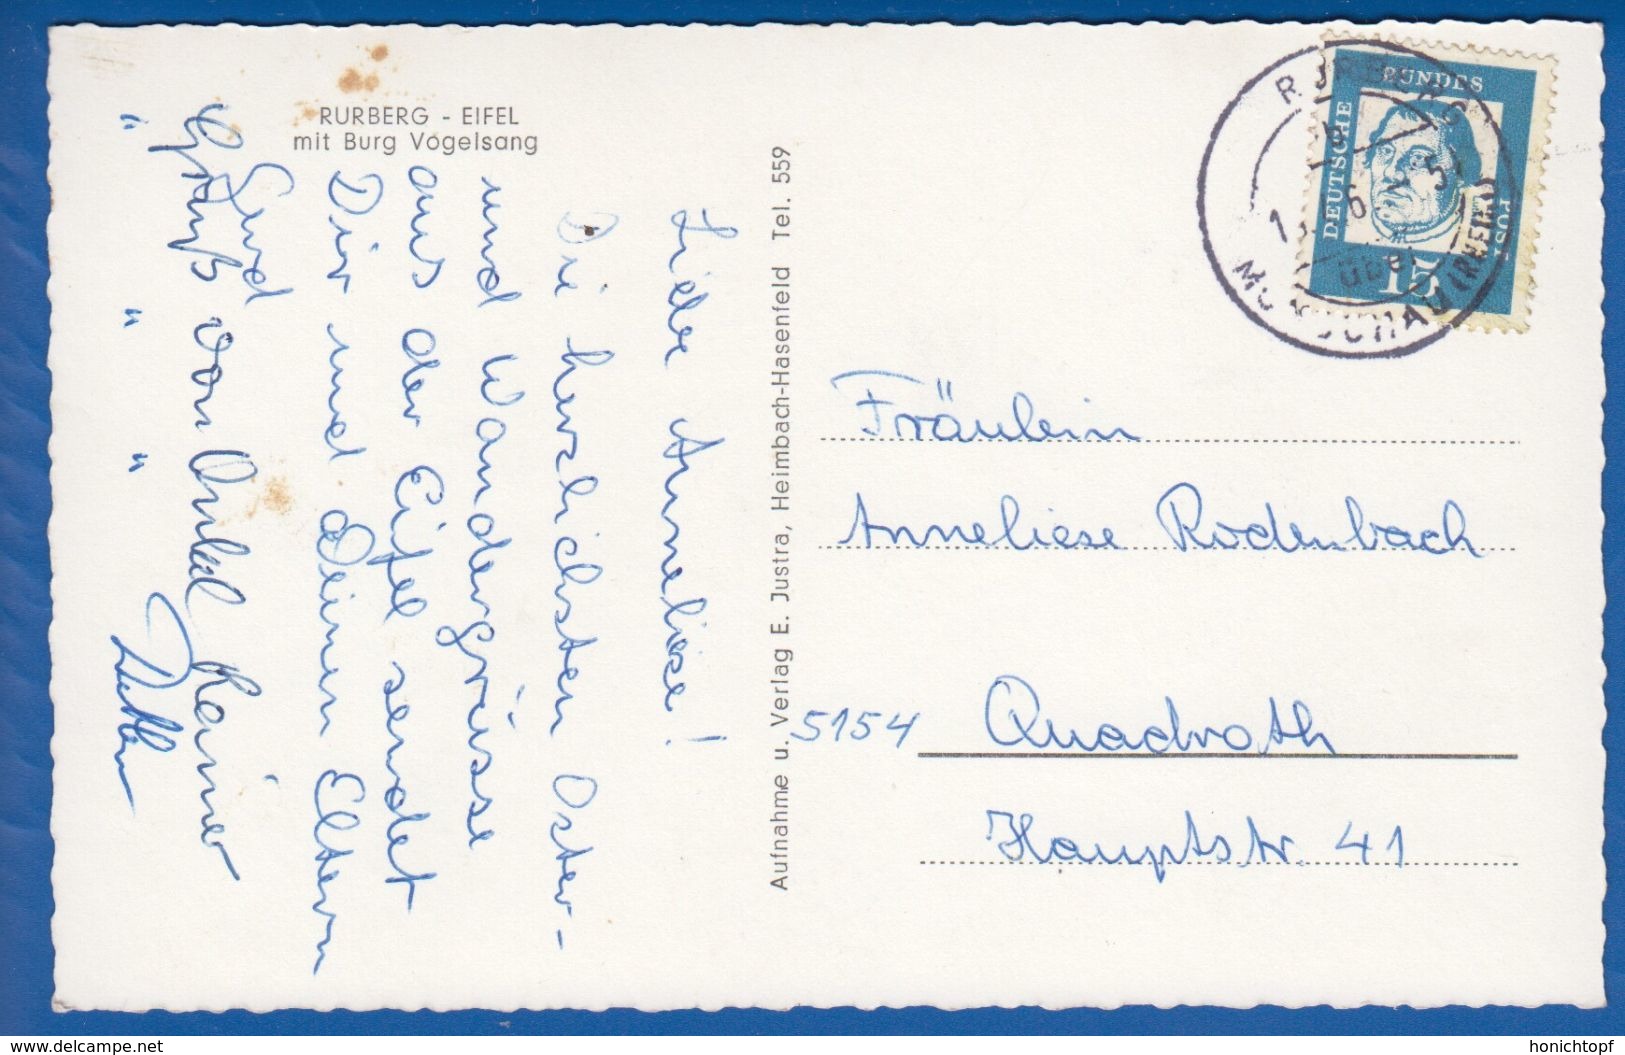 RURBERG - EIFEL
mit Burg Vogelsang
Liebe Anneliese!
Die herzlichsten Oster-
und Wandergrüsse
aus der Eifel sendet
Dir und Deinen Eltern
Gerd
Gruß von Onkel Rainer
" " "
Aufnahme u. Verlag E. Justra, Heimbach-Hasenfeld Tel. 559
RURBERG
über
MONSCHAU
DEUTSCHE
BUNDES
POST
15
Fräulein
Anneliese Rodenbach
5154 Quadrath
Hauptstr. 41
www.delcampe.net
honichtopf